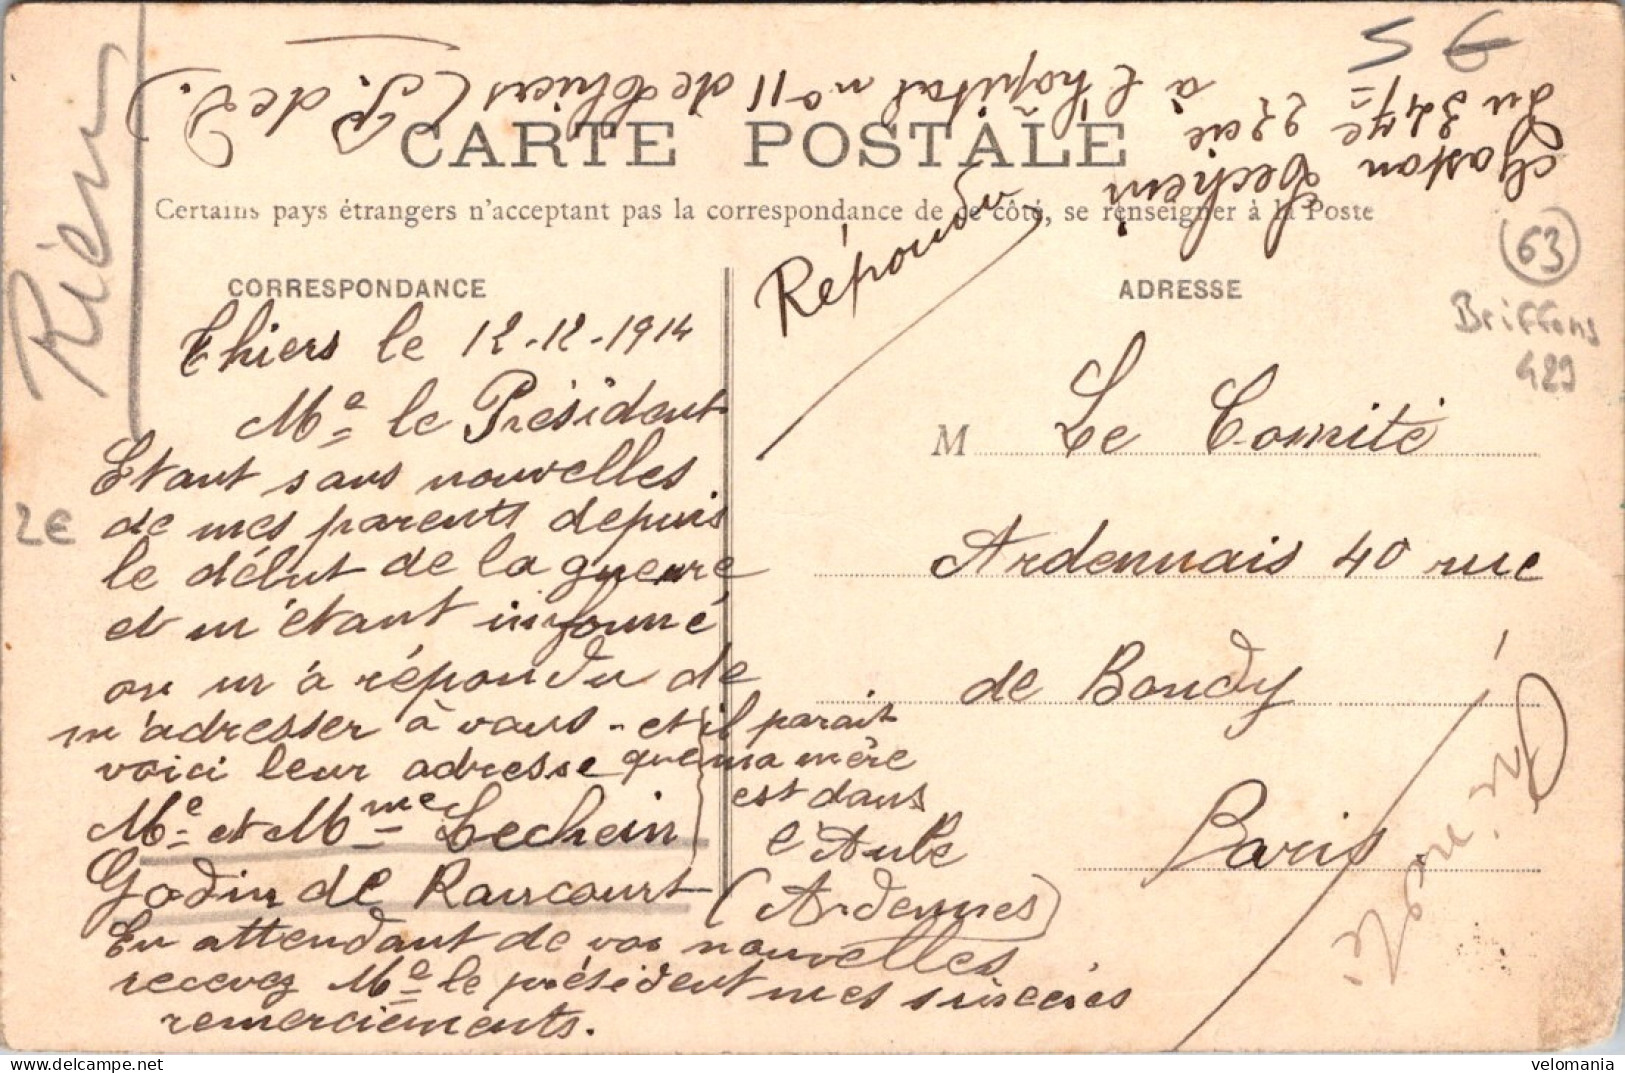 Rien
5 €
Gaston Lechein
du 347e 22cie
à l'hôpital no 11 de Thiers (P. de D.)
CARTE POSTALE
Certains pays étrangers n'acceptent pas la correspondance de ce côté, se renseigner à la Poste
Répondu
63
Briffons
429
2€
CORRESPONDANCE
Thiers le 12-12-1914
Mr le Président
Etant sans nouvelles
de mes parents depuis
le début de la guerre
et m'étant informé
on m'a répondu de
m'adresser à vous - et il parait
voici leur adresse que ma mère
est dans
Mr et Mme Lechein
l'Aube
Godin de Raucourt
(Ardennes)
En attendant de vos nouvelles
recevez Mr le président mes sincères
remerciements.
ADRESSE
M Le Comité
Ardennais 40 rue
de Bondy
Paris
velomania